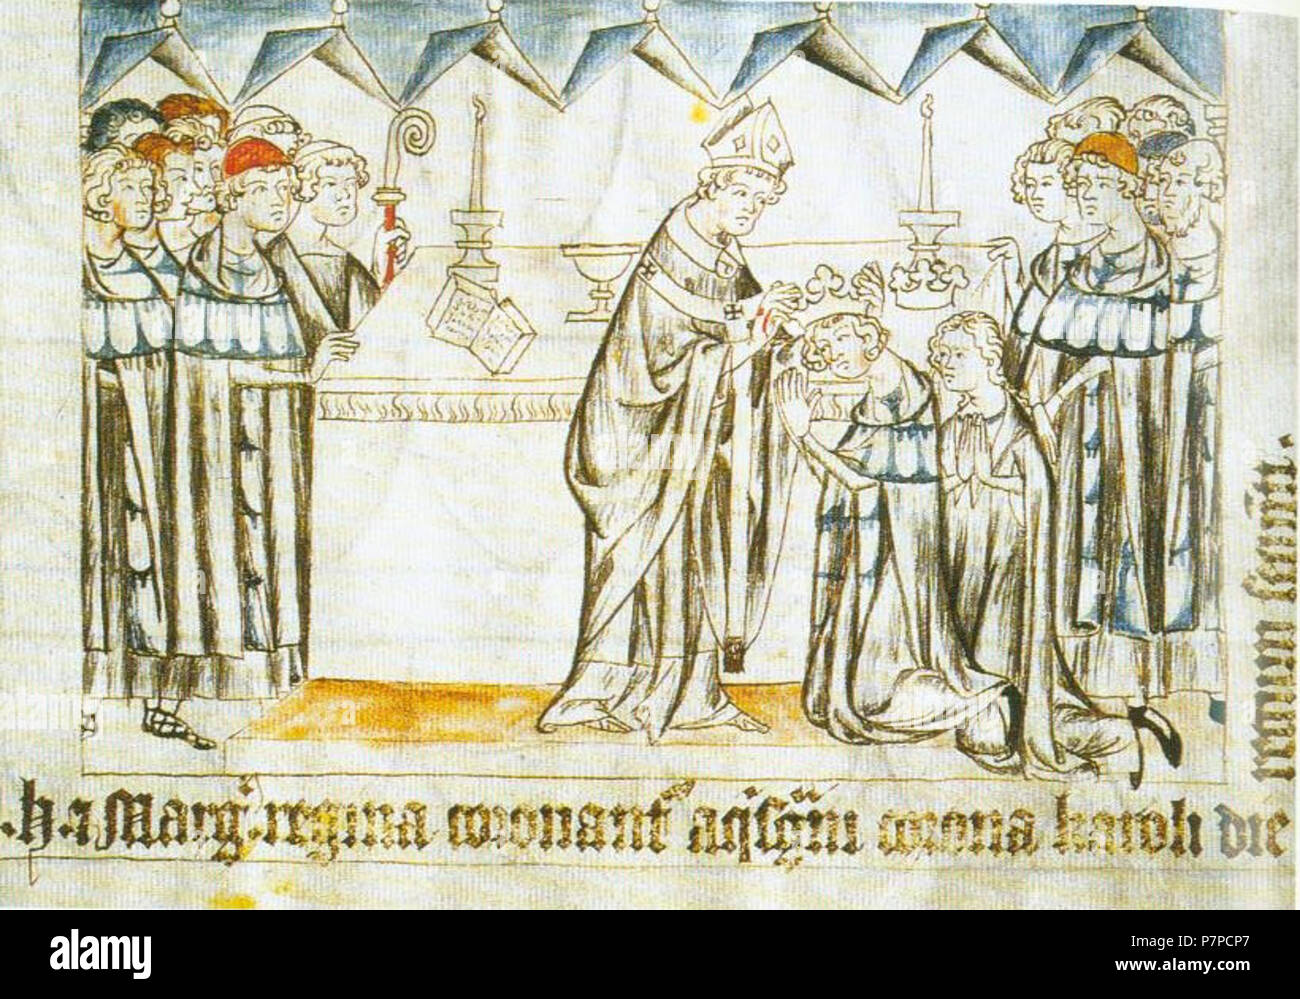 .h. ⁊ Marg. regina coronant' aq'sg'ni corona karoli die
regum secunt.
alamy
Image ID: P7PCP7
www.alamy.com